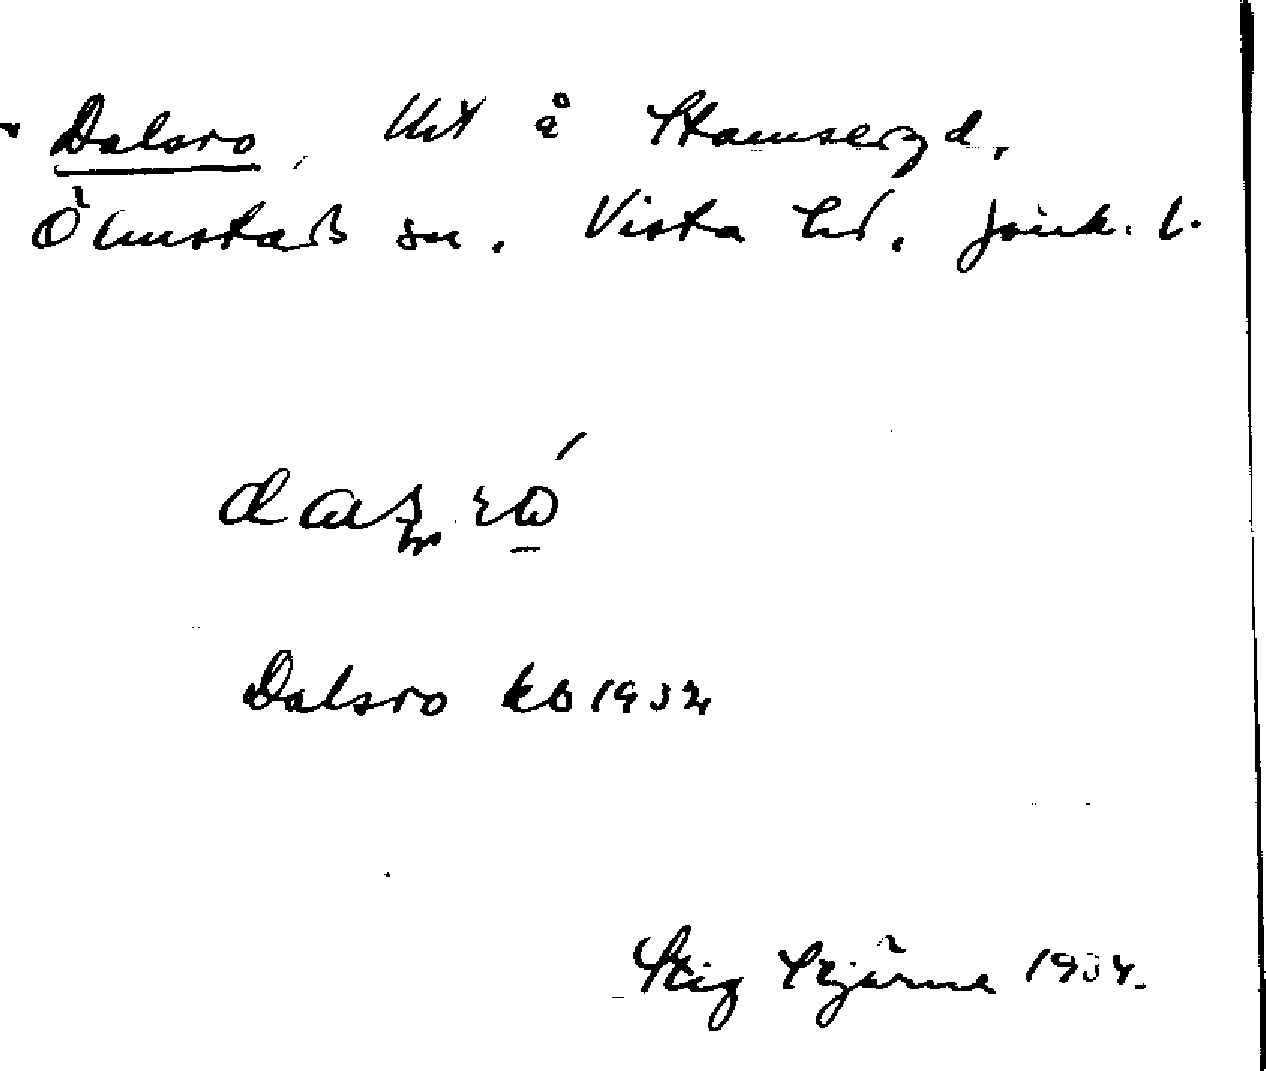 Dalsro, lht å Stamseryd.
Ölmstads sn. Vista hd. Jönk. l.
Dalsro kb 1932
Stig Stjärne 1934.